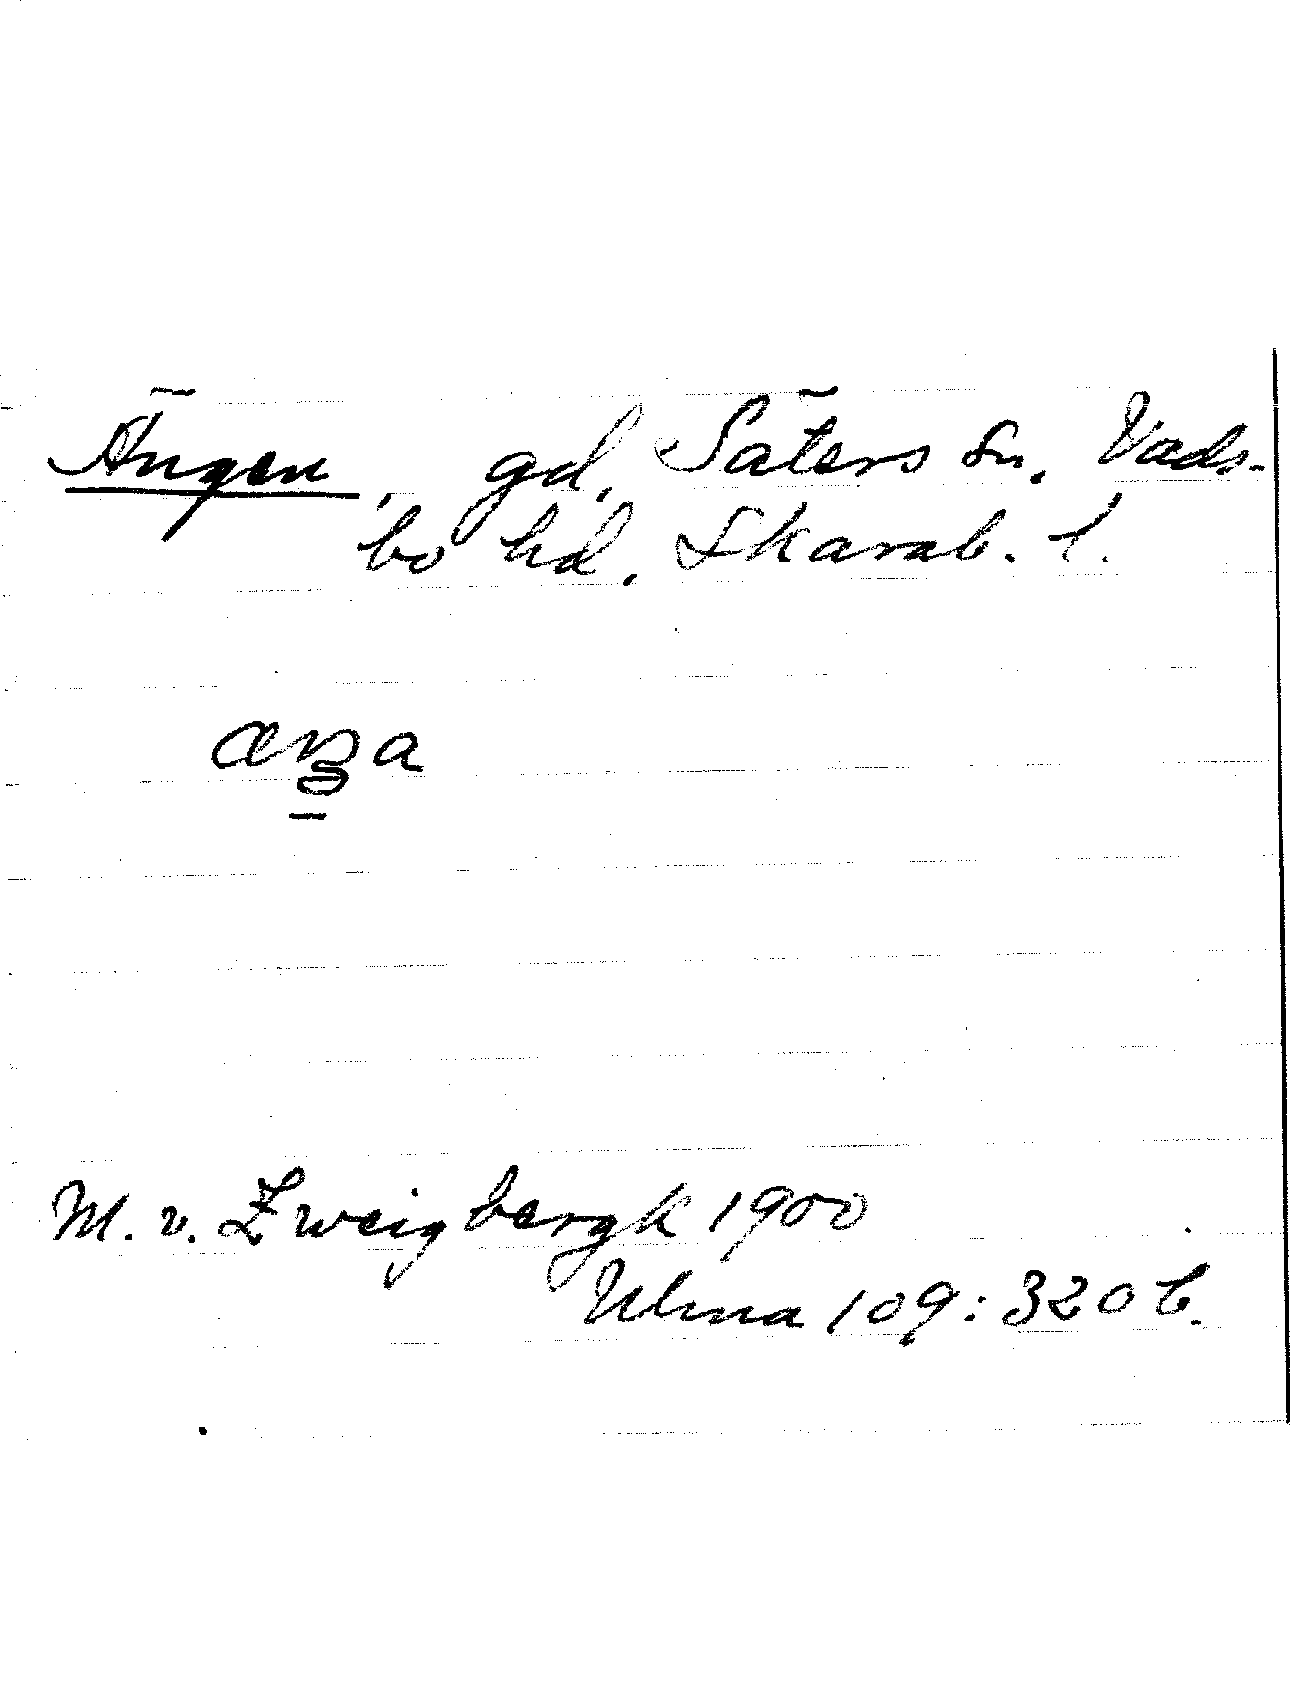 Ängen, gd, Säters sn. Vads-
bo hd, Skarab. l.
M. v. Zweigbergk 1900
Ulma 109:320 b.